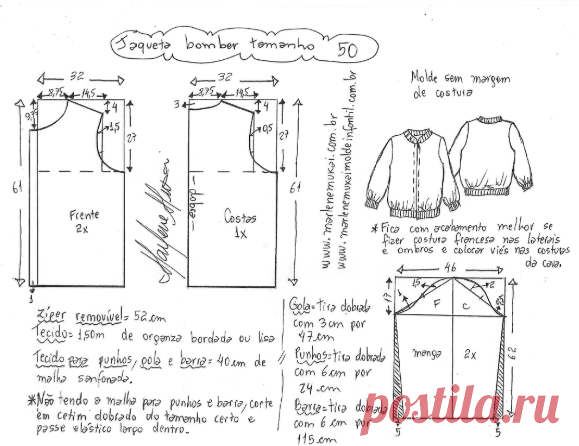 Jaqueta bomber tamanho 50
32
8,75 14,5
9,75
4
1,5
27
61
Frente
2x
1
32
8,75 14,5
3
4
0,5
27
61
dobra
Costas
1x
www.marlenemukai.com.br
www.marlenemukaimoldeinfantil.com.br
Molde sem margem
de costura
*Fica com acabamento melhor se
fizer costura francesa nas laterais
e ombros e colocar viés nas costuras
da cava.
Zíper removível= 52cm
Tecido= 1,50m de organza bordada ou lisa
Tecido para punhos, gola e barra= 40cm de
malha sanfonada.
*Não tendo a malha para punhos e barra, corte
em cetim dobrado do tamanho certo e
passe elástico largo dentro.
Gola= tira dobrada
com 3cm por
47cm
Punhos= tira dobrada
com 6cm por
24cm
Barra= tira dobrada
com 6cm por
115cm
46
17
1,5
2
F C
manga 2x
62
5 5
postila.ru